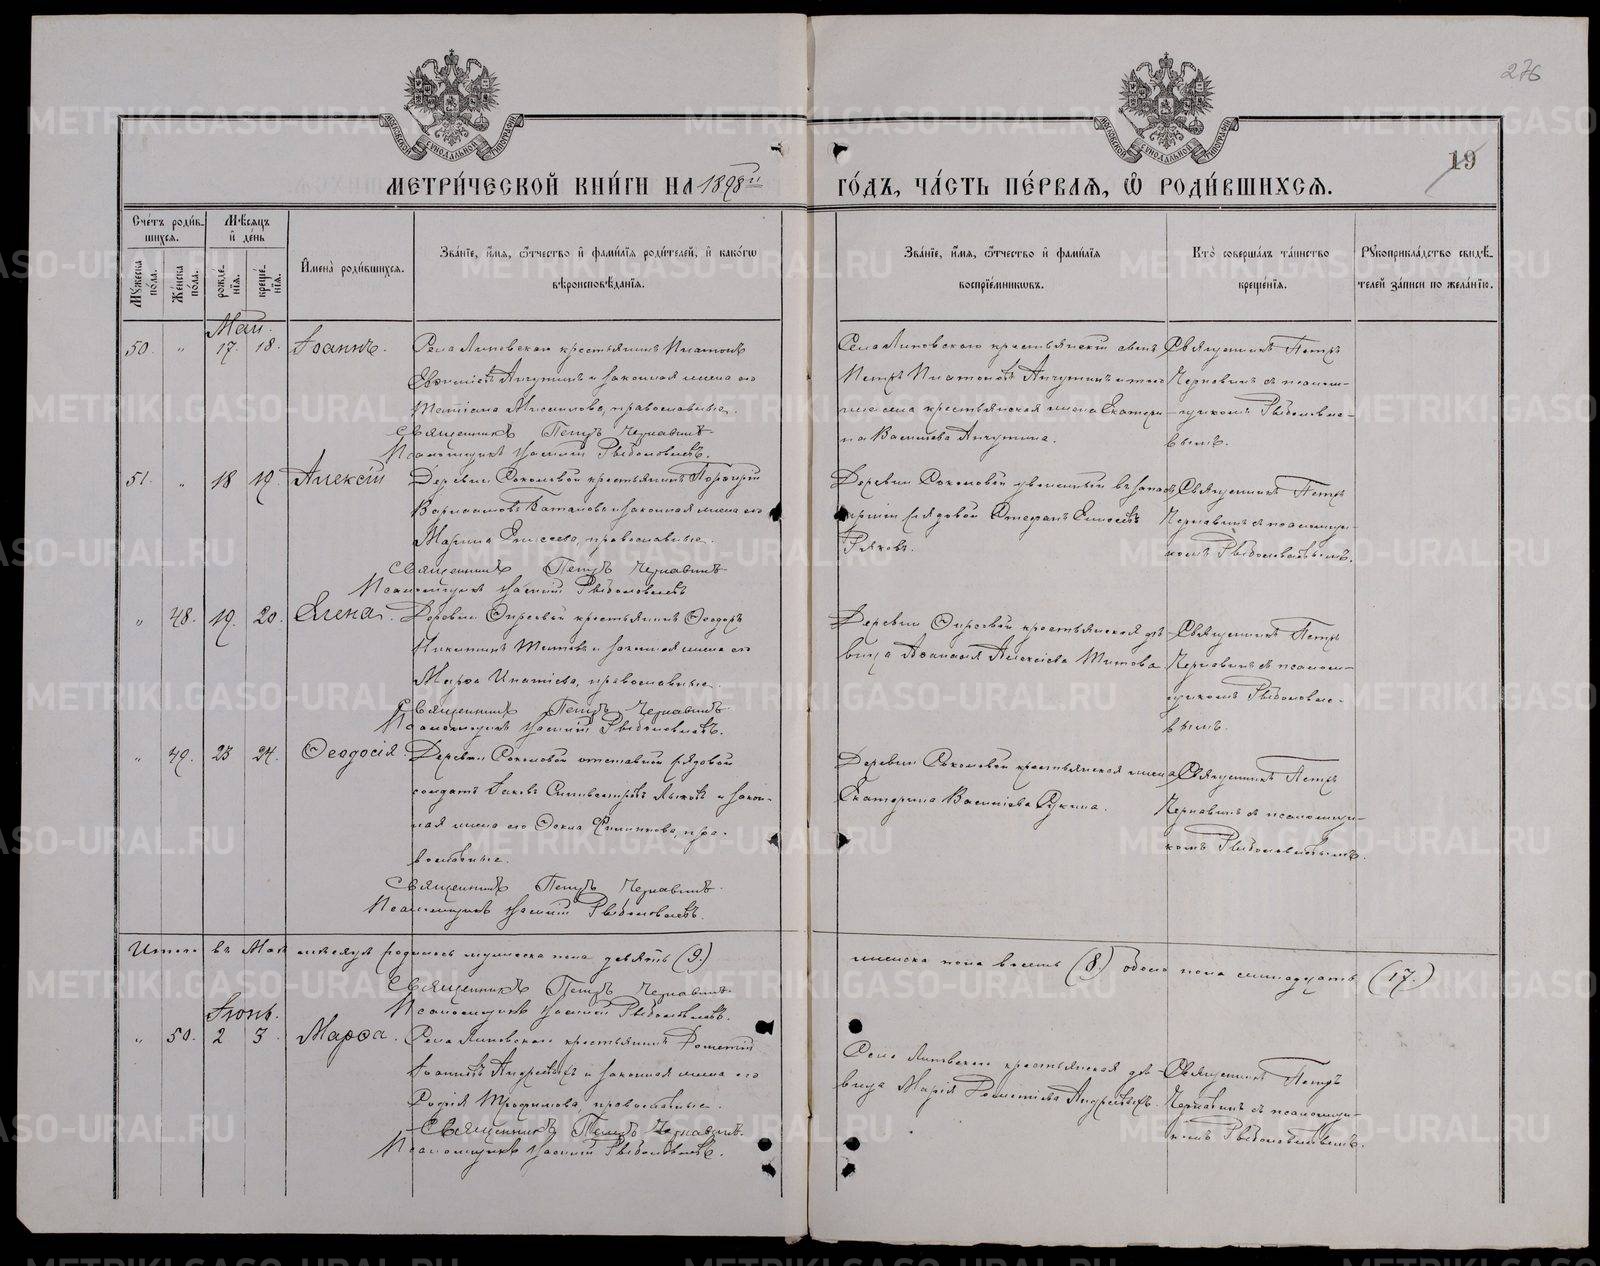 276
19
МЕТРИ́ЧЕСКОЙ КНИ́ГИ НА 1898й
ГО́ДЪ, ЧА́СТЬ ПЕ́РВАѦ, Ѽ РОДИ́ВШИХСѦ.
Сче́тъ роди́в-
шихсѧ.
Мꙋ́жеска по́ла.
Же́нска по́ла.
Мѣ́сѧцъ и҆ де́нь
рожде́нїѧ.
креще́нїѧ.
И҆мена̀ роди́вшихсѧ.
Зва́нїе, и҆́мѧ, ѻ҆́тчество и҆ фами́лїѧ роди́телей, и҆ како́гѡ
вѣроисповѣ́данїѧ.
Зва́нїе, и҆́мѧ, ѻ҆́тчество и҆ фами́лїѧ
воспрїе́мниковъ.
Кто̀ соверша́лъ та́инство
креще́нїѧ.
Рꙋкоприкла́дство свидѣ́-
телей за́писи по жела́нїю.
Май.
50. „ 17. 18. Іоаннъ.
Села Липовскаго крестьянинъ Платонъ
Евфиміевъ Анчутинъ и законная жена его
Татіана, православные.
Священникъ Петръ Чернавинъ
Псаломщикъ Рыболовлевъ.
Села Липовскаго крестьянскій сынъ
Петръ Платоновъ Анчутинъ и того
же села крестьянская жена Екатери-
на Васильева Анчутина.
Священникъ Петръ
Чернавинъ съ псалом-
щикомъ Рыболовле-
вымъ.
51. „ 18 19. Алексій
Деревни Соколовой крестьянинъ Порфирій
Варлаамовъ и законная жена его
Марина Елисеева, православные.
Священникъ Петръ Чернавинъ
Псаломщикъ Рыболовлевъ
Деревни Соколовой уволенный въ запасъ
арміи рядовой Стефанъ Елисеевъ
Священникъ Петръ
Чернавинъ съ псаломщи-
комъ Рыболовлевымъ.
„ 48. 19. 20. Елена.
Деревни крестьянинъ Ѳеодоръ
Никитинъ Титовъ и законная жена его
Марѳа Ипатіева, православные.
Священникъ Петръ Чернавинъ.
Псаломщикъ Рыболовлевъ.
Деревни крестьянская дѣ-
вица Алексіева Титова
Священникъ Петръ
Чернавинъ съ псалом-
щикомъ Рыболовле-
вымъ.
„ 49. 23 24. Ѳеодосія.
Деревни Соколовой отставной рядовой
солдатъ Іаковъ Сильвестровъ и закон-
ная жена его Ѳекла Филиппова, пра-
вославные.
Священникъ Петръ Чернавинъ.
Псаломщикъ Рыболовлевъ.
Деревни Соколовой крестьянская жена
Екатерина Васильева
Священникъ Петръ
Чернавинъ съ псаломщи-
комъ Рыболовлевымъ.
Итого въ Маѣ мѣсяцѣ родилось мужеска пола девять (9.)
женска пола восемь (8.) обоего пола семнадцать (17.)
Священникъ Петръ Чернавинъ.
Псаломщикъ Рыболовлевъ.
Іюнь.
„ 50. 2 3. Марѳа.
Села Липовскаго крестьянинъ Дометій
Іоанновъ Андреевыхъ и законная жена его
Софія Трофимова, православные.
Священникъ Петръ Чернавинъ.
Псаломщикъ Рыболовлевъ.
Села Липовскаго крестьянская дѣ-
вица Марія Дометіева Андреевыхъ.
Священникъ Петръ
Чернавинъ съ псаломщи-
комъ Рыболовлевымъ.
METRIKI.GASO-URAL.RU